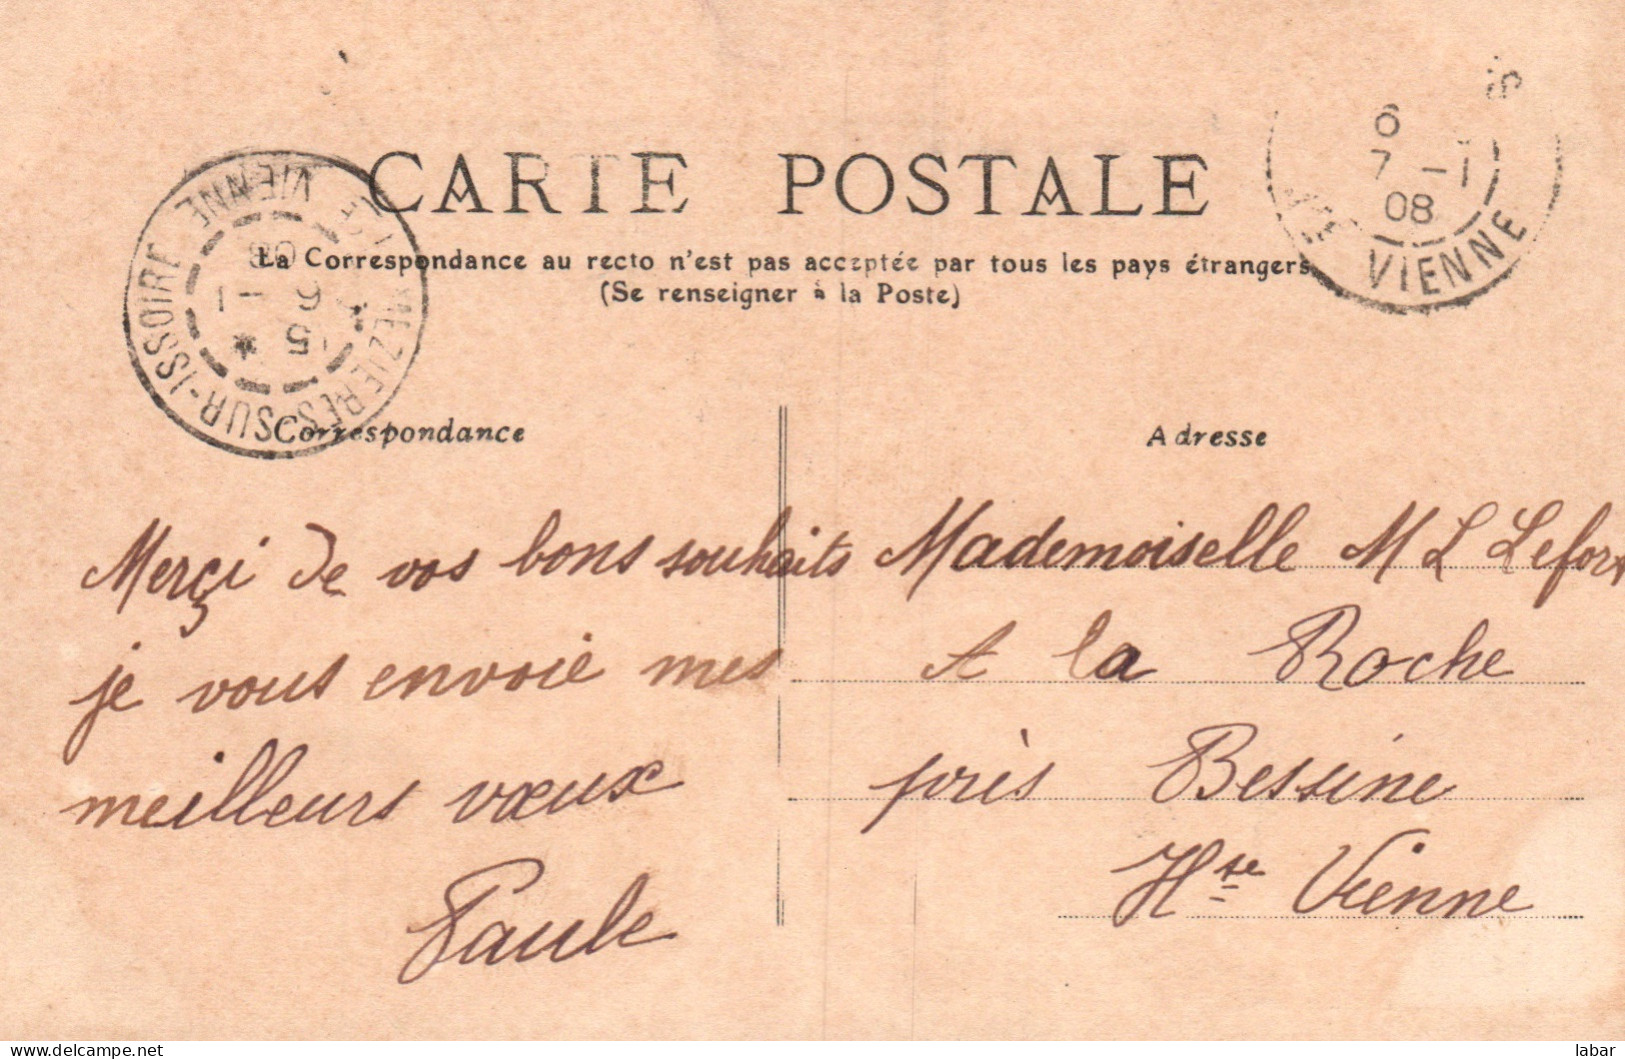 CARTE POSTALE
La Correspondance au recto n'est pas acceptée par tous les pays étrangers
(Se renseigner à la Poste)
MEZIERES-SUR-ISSOIRE
VIENNE
15 *
6 -1
08
6
7 -1
08
VIENNE
Correspondance
Merçi de vos bons souhaits
je vous envoie mes
meilleurs vœux
Paule
Adresse
Mademoiselle M L Lefort
A la Roche
près Bessine
Hte Vienne
delcampe.net
labar